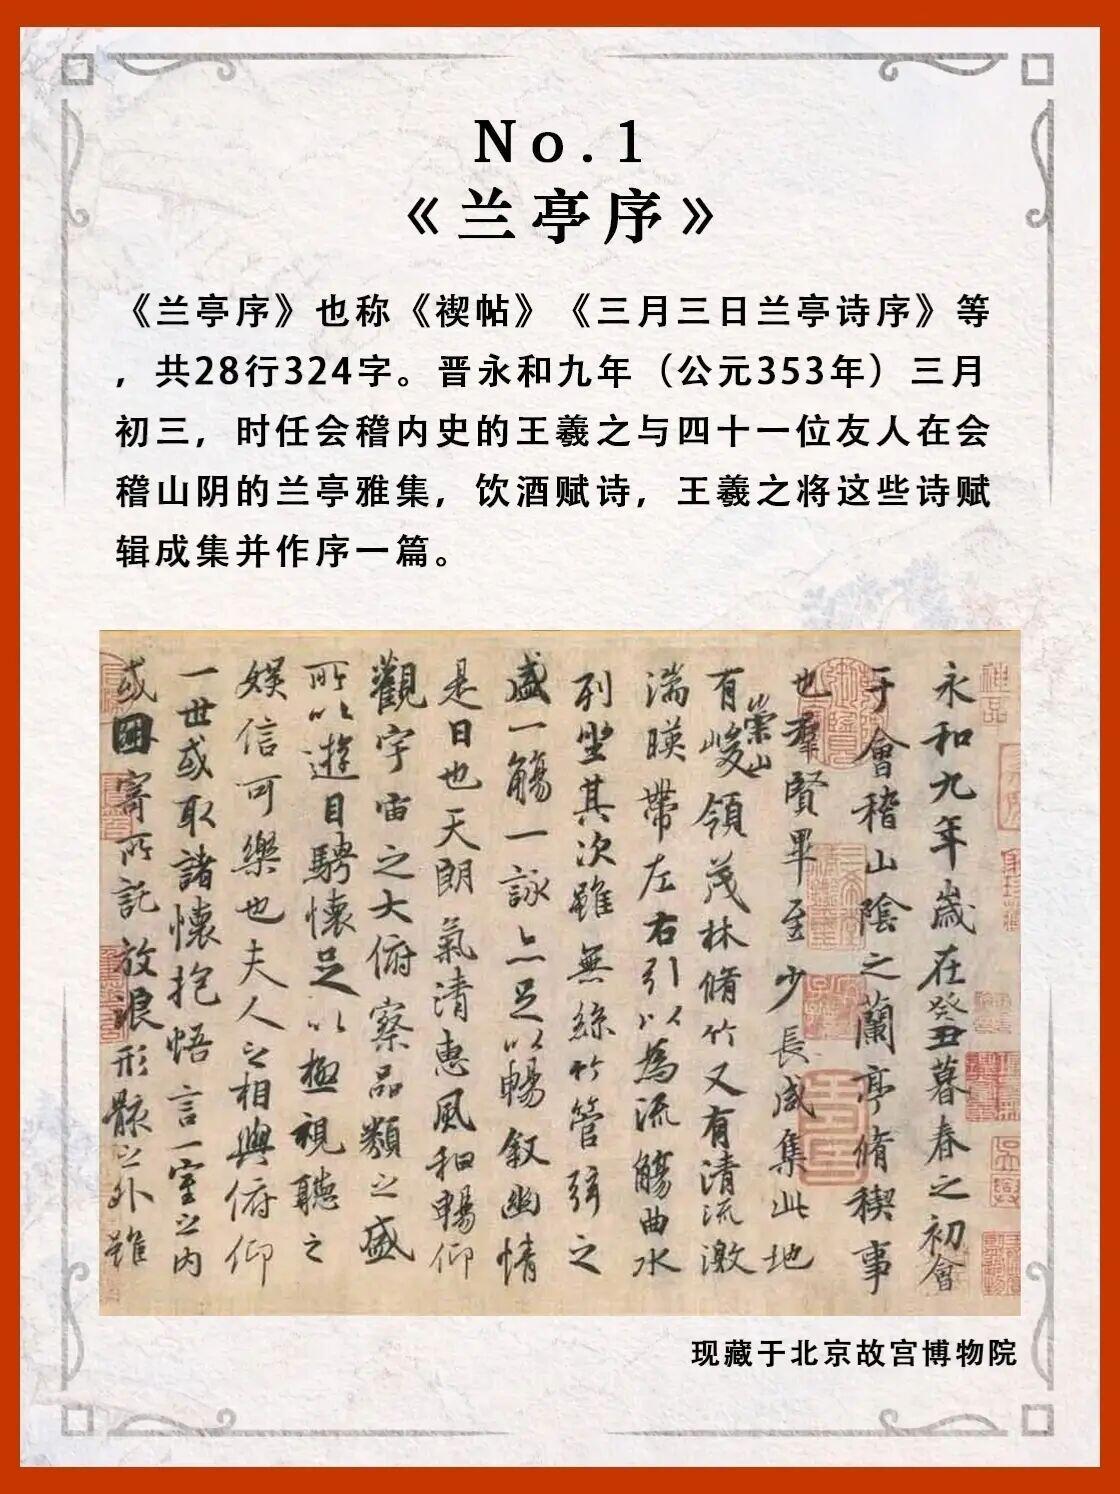 No.1
《兰亭序》
《兰亭序》也称《禊帖》《三月三日兰亭诗序》等
，共28行324字。晋永和九年（公元353年）三月
初三，时任会稽内史的王羲之与四十一位友人在会
稽山阴的兰亭雅集，饮酒赋诗，王羲之将这些诗赋
辑成集并作序一篇。
永和九年歲在癸丑暮春之初會
于會稽山陰之蘭亭脩稧事
也羣賢畢至少長咸集此地
有崇山峻領茂林脩竹又有清流激
湍暎帶左右引以為流觴曲水
列坐其次雖無絲竹管弦之
盛一觴一詠亦足以暢敘幽情
是日也天朗氣清惠風和暢仰
觀宇宙之大俯察品類之盛
所以遊目騁懷足以極視聽之
娛信可樂也夫人之相與俯仰
一世或取諸懷抱悟言一室之內
或因寄所託放浪形骸之外雖
神品
現藏于北京故宫博物院